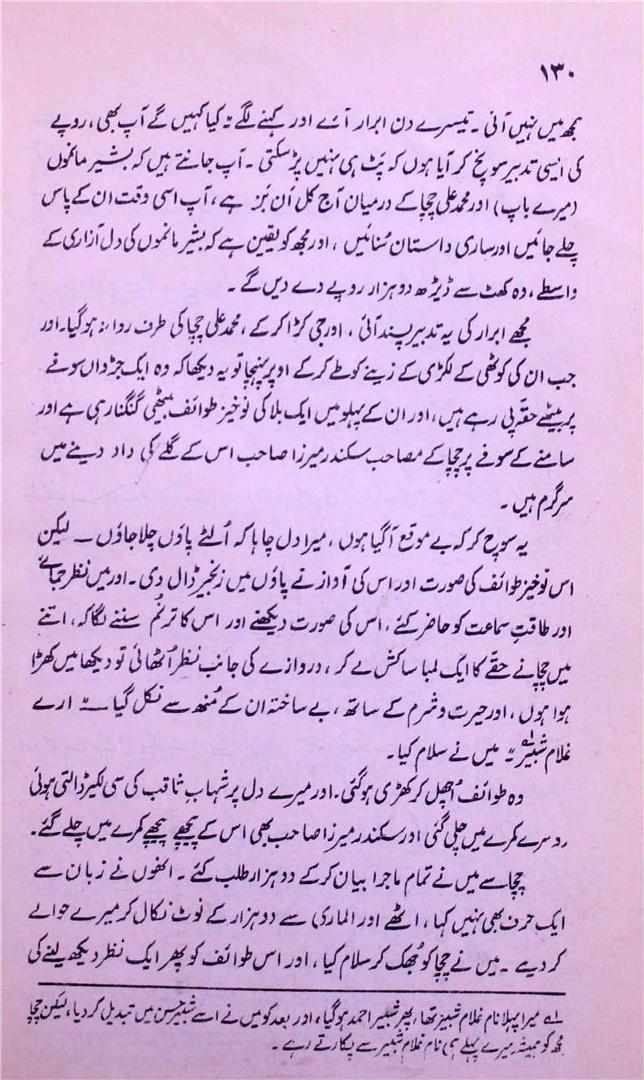 ۱۳۰
مجھ میں نہیں آئی ۔ تیسرے دن ابرار آئے اور کہنے لگے "کیا کہیں گے آپ بھی، روپے
کی ایسی تدبیر سوچ کر آیا ہوں کہ پٹ ہی نہیں پڑ سکتی ۔ آپ جانتے ہیں کہ بشیر ماموں
(میرے باپ) اور محمد علی چچا کے درمیان آج کل اَن بَن ہے، آپ اسی وقت ان کے پاس
چلے جائیں اور ساری داستان سُنائیں، اور مجھ کو یقین ہے کہ بشیر ماموں کی دل آزاری کے
واسطے، وہ کھٹ سے ڈیڑھ دو ہزار روپے دے دیں گے ۔
مجھے ابرار کی یہ تدبیر پسند آئی، اور جی کڑا کرکے، محمد علی چچا کی طرف روانہ ہو گیا۔ اور
جب ان کی کوٹھی کے لکڑی کے زینے کو طے کرکے اوپر پہنچا تو یہ دیکھا کہ وہ ایک جڑواں سوفے
پر بیٹھے حقہ پی رہے ہیں، اور ان کے پہلو میں ایک بلا کی نوخیز طوائف بیٹھی گنگنا رہی ہے اور
سامنے کے سوفے پر چچا کے مصاحب سکندر میرزا صاحب اس کے گلے کی داد دینے میں
سرگرم ہیں ۔
یہ سوچ کر کہ بے موقع آگیا ہوں، میرا دل چاہا کہ اُلٹے پاؤں چلا جاؤں ــ لیکن
اس نوخیز طوائف کی صورت اور اس کی آواز نے پاؤں میں زنجیر ڈال دی ۔ اور میں نظر جمائے
اور طاقتِ سماعت کو حاضر کئے، اس کی صورت دیکھنے اور اس کا ترنّم سننے لگا کہ، اتنے
میں چچا نے حقّے کا ایک لمبا سا کش لے کر، دروازے کی جانب نظر اُٹھائی تو دیکھا میں کھڑا
ہوا ہوں، اور حیرت و شرم کے ساتھ، بے ساختہ ان کے مُنھ سے نکل گیا ــ "ارے
غلام شبیر؎۱" میں نے سلام کیا۔
وہ طوائف اُچھل کر کھڑی ہوگئی۔ اور میرے دل پر شہابِ ثاقب کی سی لکیر ڈالتی ہوئی
دوسرے کمرے میں چلی گئی اور سکندر میرزا صاحب بھی اس کے پیچھے پیچھے کمرے میں چلے گئے ۔
چچا سے میں نے تمام ماجرا بیان کرکے دو ہزار طلب کئے ۔ انھوں نے زبان سے
ایک حرف بھی نہیں کہا، اٹھے اور الماری سے دو ہزار کے نوٹ نکال کر میرے حوالے
کر دیے ۔ میں نے چچا کو جُھک کر سلام کیا، اور اس طوائف کو پھر ایک نظر دیکھ لینے کی
؎۱ میرا پہلا نام غلام شبیر تھا، پھر شبیر احمد ہوگیا، اور بعد کو میں نے اسے شبیر حسن میں تبدیل کر دیا، لیکن چچا
مجھ کو ہمیشہ میرے پہلے ہی نام غلام شبیر سے پکارتے رہے ۔